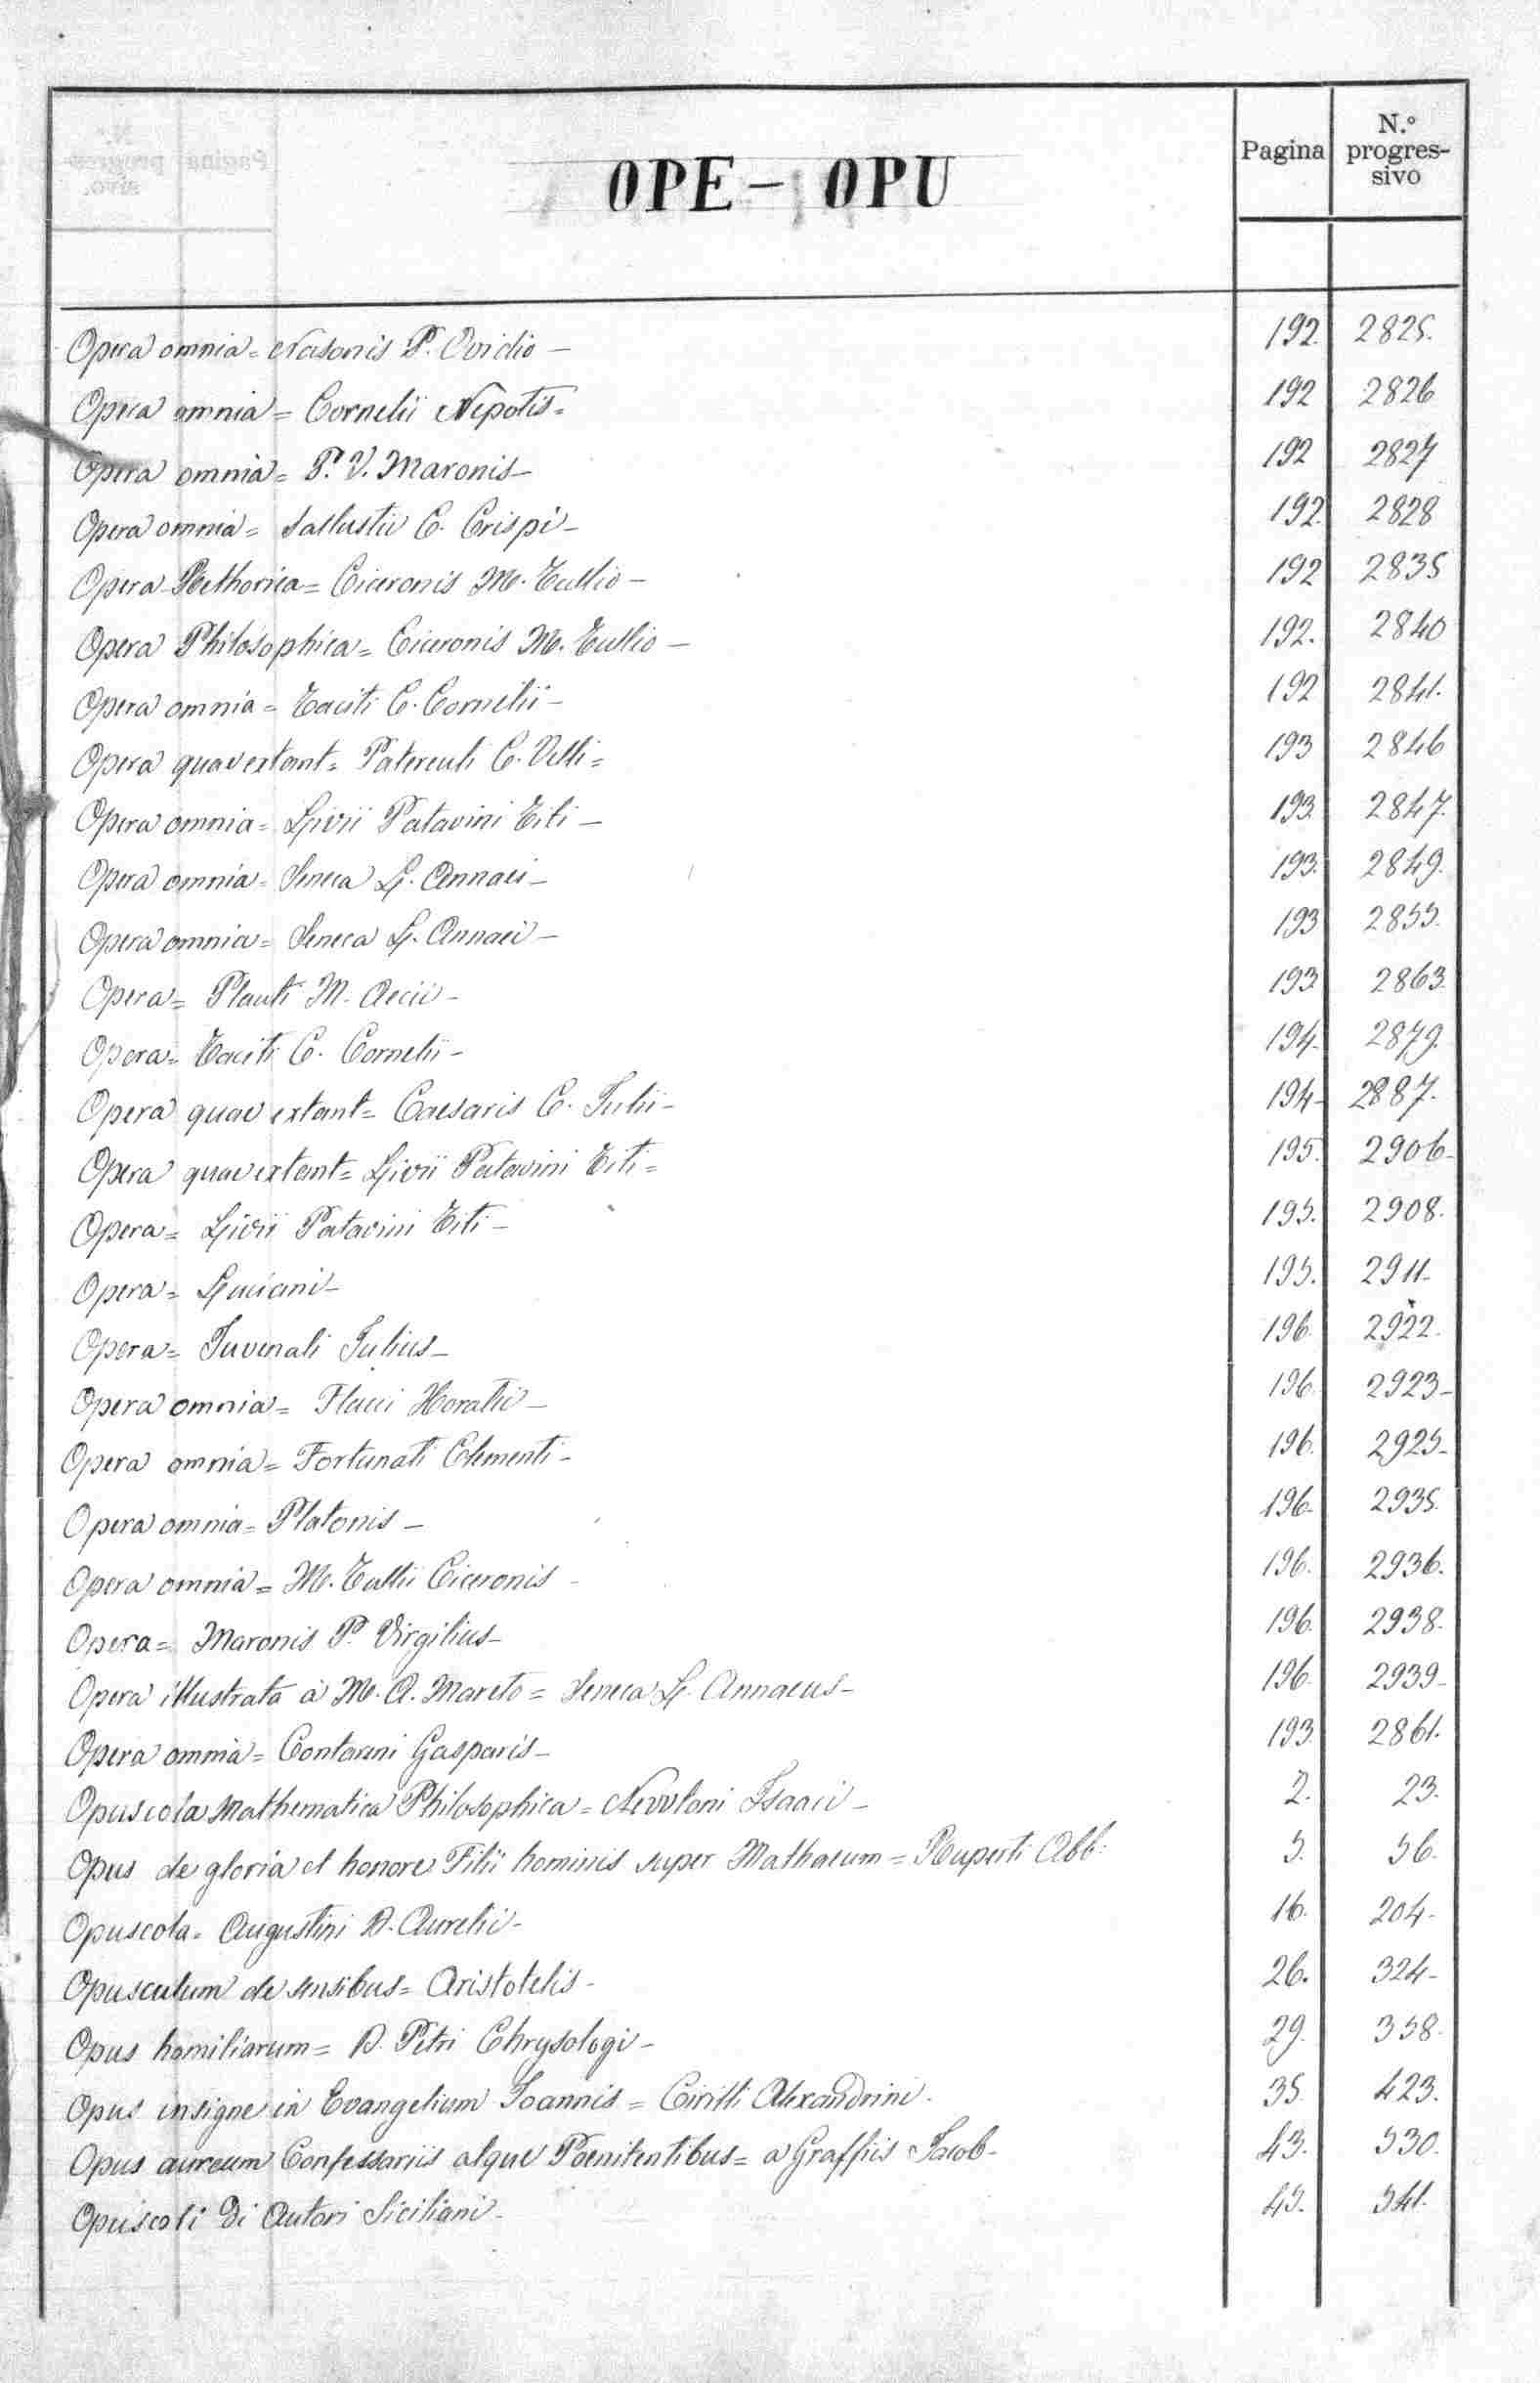 Pagina
N.º progres-
sivo
OPE - OPU
Opera omnia = Nasonis P. Ovidio - 192. 2825.
Opera omnia = Cornelii Nepotis = 192 2826
Opera omnia = P. V. Maronis - 192 2827
Opera omnia = Sallustii C. Crispi - 192. 2828
Opera Rethorica = Ciceronis M. Tullio - 192 2835
Opera Philosophica = Ciceronis M. Tullio - 192. 2840
Opera omnia = Taciti C. Cornelii - 192 2841.
Opera quae extant = Paterculi C. Velli = 193 2846
Opera omnia = Livii Patavini Titi - 193. 2847.
Opera omnia = Seneca L. Annaei - 193. 2849.
Opera omnia = Seneca L. Annaei - 193 2855.
Opera = Plauti M. Accii - 193 2863.
Opera = Taciti C. Cornelii - 194- 2879.
Opera quae extant = Caesaris C. Iulii - 194- 2887.
Opera quae extant = Livii Patavini Titi = 195. 2906-
Opera = Livii Patavini Titi - 195. 2908.
Opera = Luciani - 195. 2911-
Opera = Iuvenali Iulius - 196. 2922.
Opera omnia = Flacci Horatii - 196. 2923-
Opera omnia = Fortunati Clementi - 196. 2925-
Opera omnia = Platonis - 196. 2935.
Opera omnia = M. Tullii Ciceronis - 196. 2936.
Opera = Maronis P. Virgilius - 196. 2938.
Opera illustrata à M. A. Mareto = Seneca L. Annaeus - 196. 2939-
Opera omnia = Contareni Gasparis - 193. 2861.
Opuscola Mathematica Philosophica = Nevvtoni Isaaci - 2. 23.
Opus de gloria et honore Filii hominis super Mathaeum = Ruperti Abb: 5. 56.
Opuscola = Augustini D. Aurelii - 16. 204-
Opusculum de sensibus = Aristotelis - 26. 324-
Opus homiliarum = D. Petri Chrysologi - 29. 358.
Opus insigne in Evangelium Ioannis = Cirilli Alexandrini. 35. 423.
Opus aureum Confessariis atque Poenitentibus = a Graffiis Iacob - 43. 530.
Opuscoli di Autori Siciliani - 45. 541.